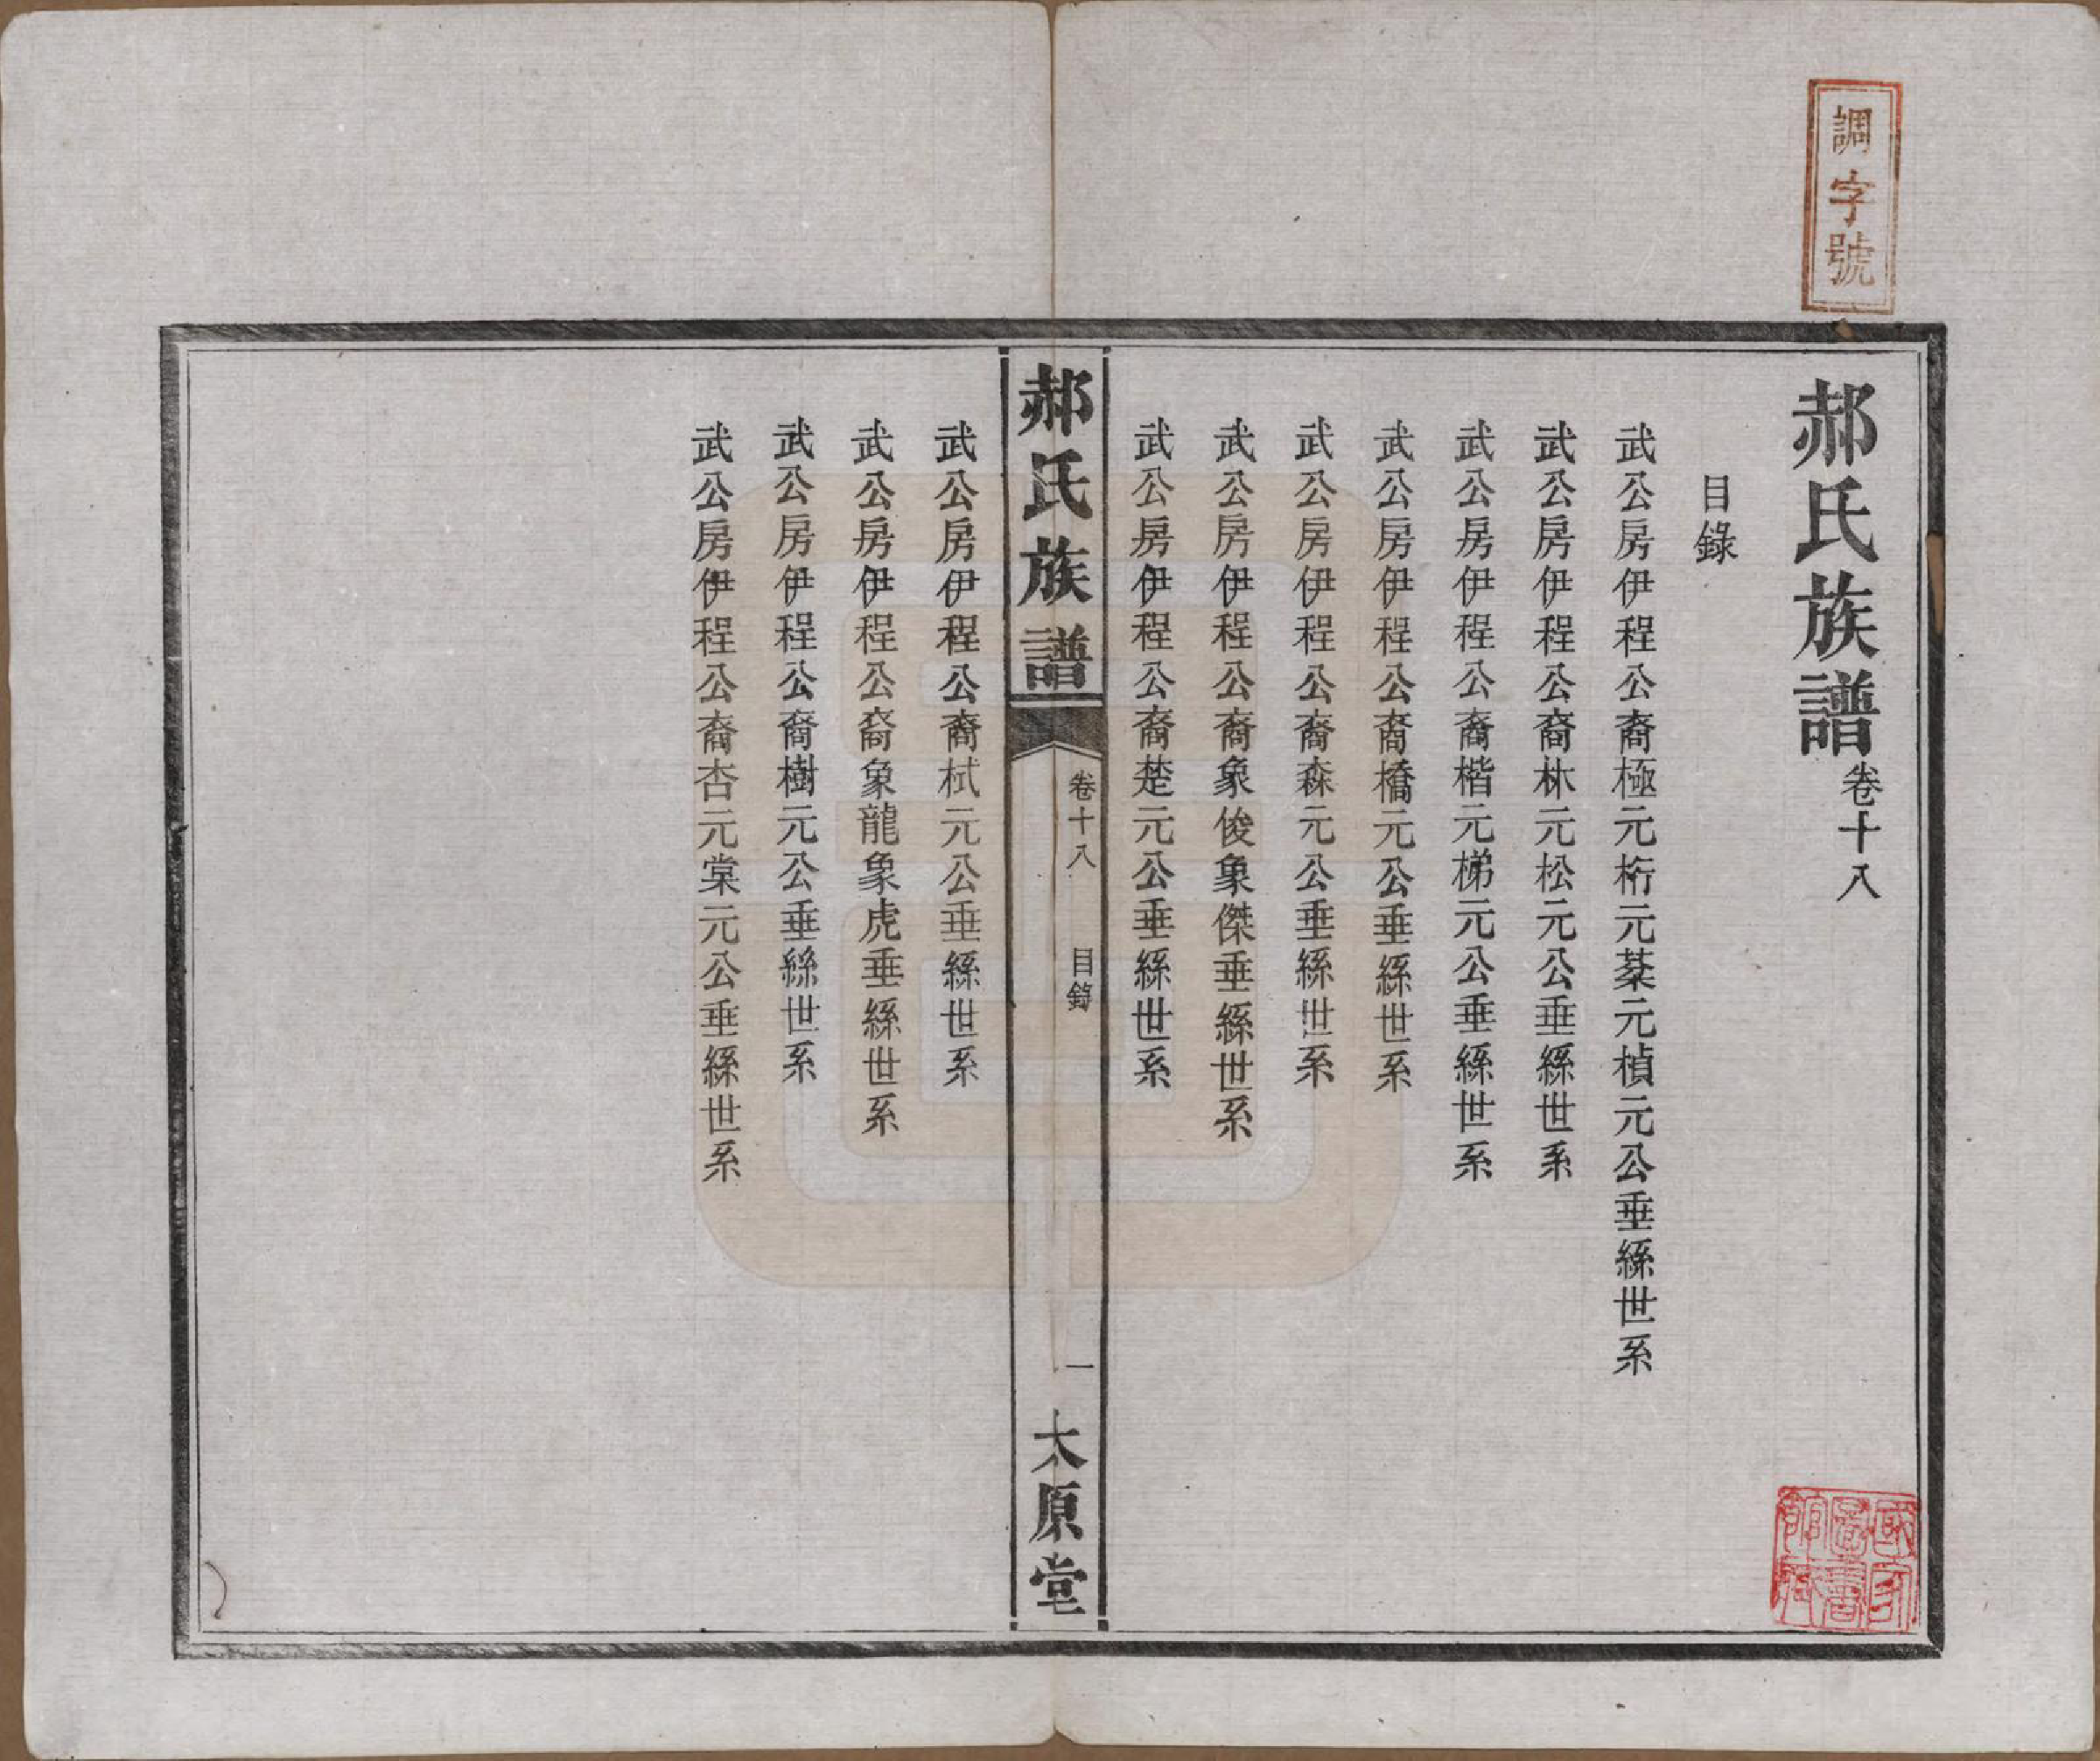 調字號
郝氏族譜卷十八
目錄
武公房伊程公裔極元桁元棻元楨元公垂絲世系
武公房伊程公裔林元松元公垂絲世系
武公房伊程公裔楷元梯元公垂絲世系
武公房伊程公裔橋元公垂絲世系
武公房伊程公裔森元公垂絲世系
武公房伊程公裔象俊象傑垂絲世系
武公房伊程公裔楚元公垂絲世系
郝氏族譜
卷十八
目錄
一
太原堂
武公房伊程公裔栻元公垂絲世系
武公房伊程公裔象龍象虎垂絲世系
武公房伊程公裔樹元公垂絲世系
武公房伊程公裔杏元棠元公垂絲世系
國家圖書館藏